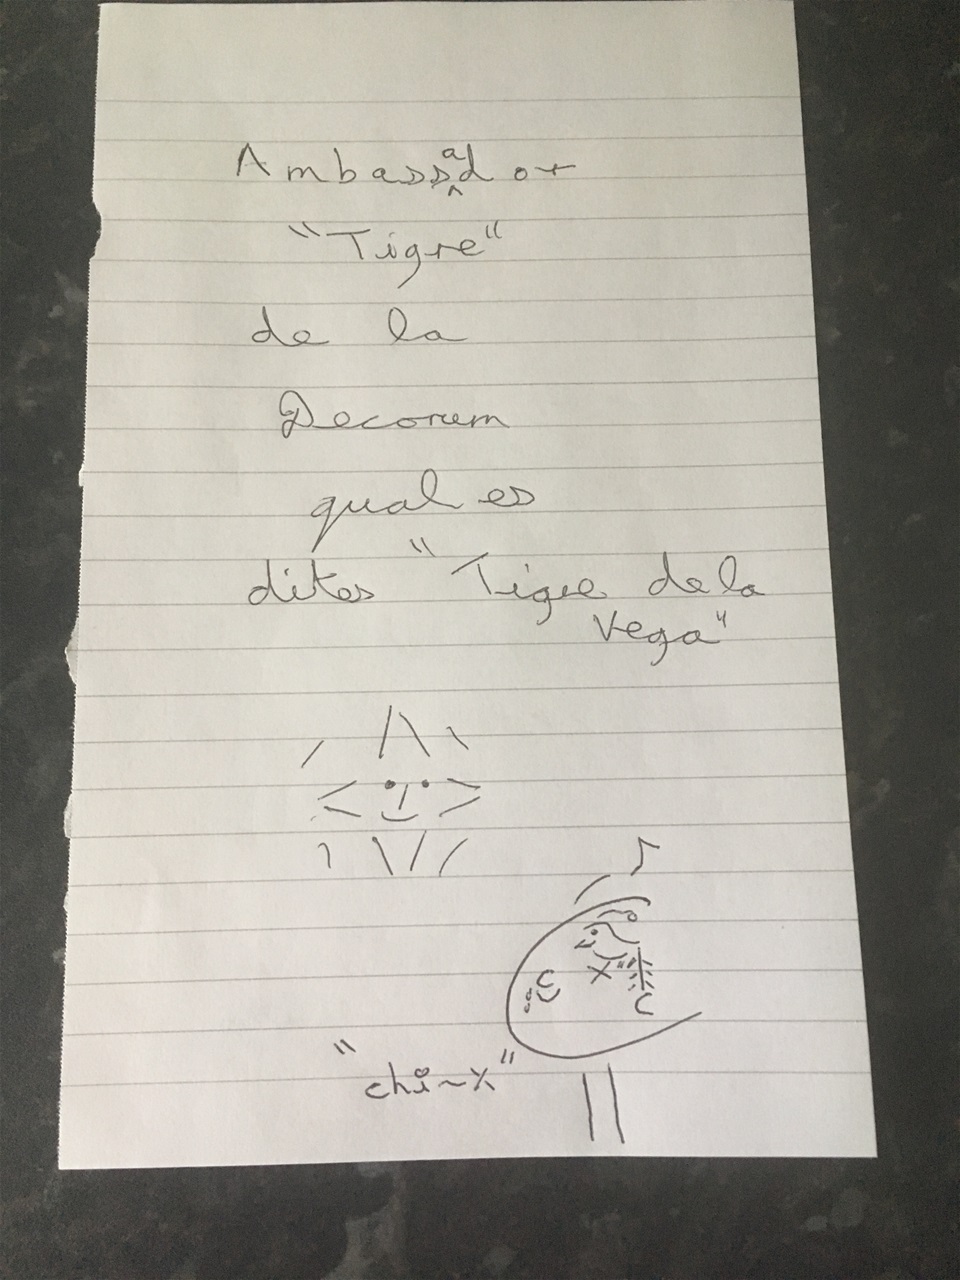 Ambassador
"Tigre"
de la
Decorum
qual es
dites "Tigre de la
Vega"
"chi~x"